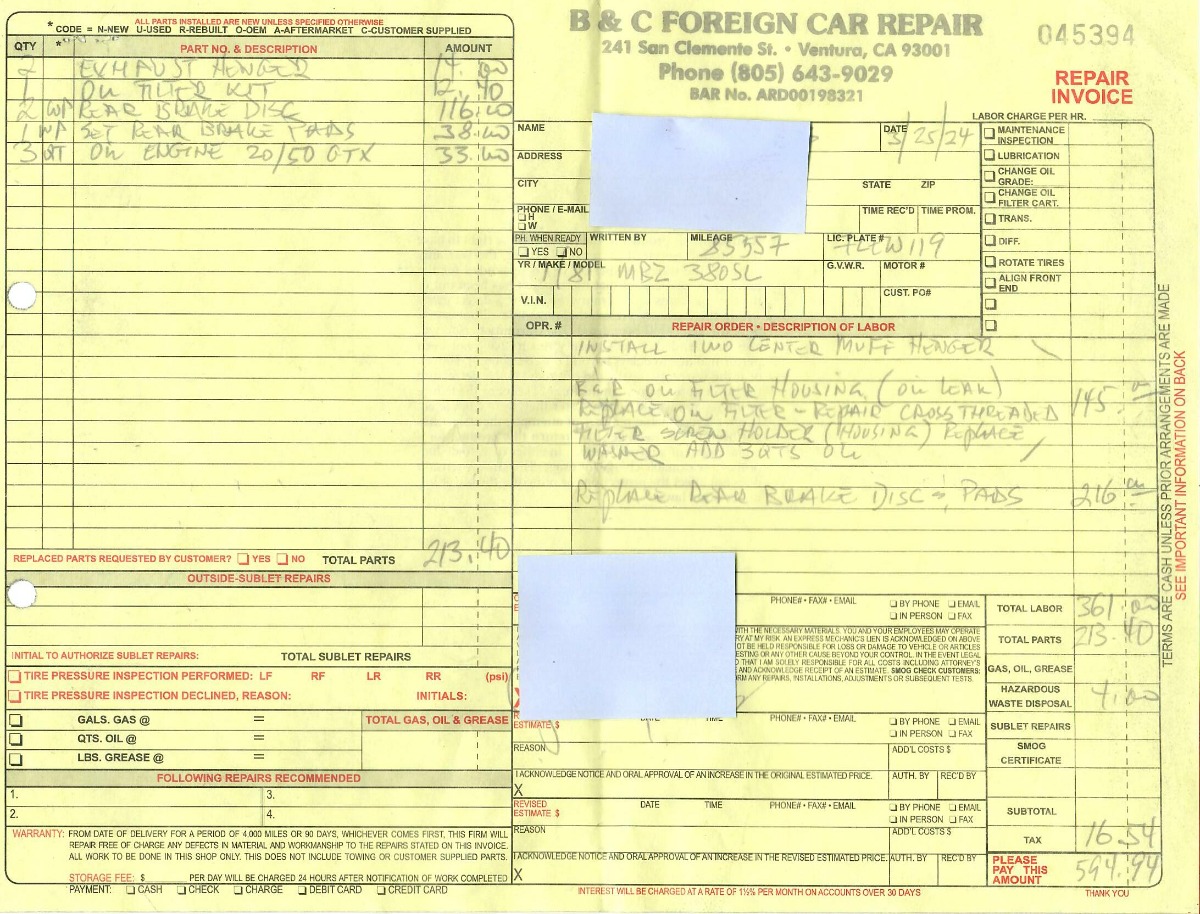 ALL PARTS INSTALLED ARE NEW UNLESS SPECIFIED OTHERWISE
* CODE = N-NEW U-USED R-REBUILT O-OEM A-AFTERMARKET C-CUSTOMER SUPPLIED
QTY * PART NO. & DESCRIPTION AMOUNT
2 EXHAUST HENGER 14.00
1 OIL FILTER KIT 12.40
2 WP REAR BRAKE DISC 116.00
1 WP SET REAR BRAKE PADS 38.00
3 QT OIL ENGINE 20/50 GTX 33.00
REPLACED PARTS REQUESTED BY CUSTOMER? YES NO TOTAL PARTS 213.40
OUTSIDE-SUBLET REPAIRS
INITIAL TO AUTHORIZE SUBLET REPAIRS: TOTAL SUBLET REPAIRS
TIRE PRESSURE INSPECTION PERFORMED: LF RF LR RR (psi)
TIRE PRESSURE INSPECTION DECLINED, REASON: INITIALS:
GALS. GAS @ = TOTAL GAS, OIL & GREASE
QTS. OIL @ =
LBS. GREASE @ =
FOLLOWING REPAIRS RECOMMENDED
1. 3.
2. 4.
WARRANTY: FROM DATE OF DELIVERY FOR A PERIOD OF 4,000 MILES OR 90 DAYS, WHICHEVER COMES FIRST, THIS FIRM WILL
REPAIR FREE OF CHARGE ANY DEFECTS IN MATERIAL AND WORKMANSHIP TO THE REPAIRS STATED ON THIS INVOICE.
ALL WORK TO BE DONE IN THIS SHOP ONLY. THIS DOES NOT INCLUDE TOWING OR CUSTOMER SUPPLIED PARTS.
STORAGE FEE: $ PER DAY WILL BE CHARGED 24 HOURS AFTER NOTIFICATION OF WORK COMPLETED
PAYMENT: CASH CHECK CHARGE DEBIT CARD CREDIT CARD
B & C FOREIGN CAR REPAIR
241 San Clemente St. • Ventura, CA 93001
Phone (805) 643-9029
BAR No. ARD00198321
045394
REPAIR
INVOICE
LABOR CHARGE PER HR.
NAME DATE 3/25/24
ADDRESS
CITY STATE ZIP
PHONE / E-MAIL TIME REC'D TIME PROM.
H
W
PH. WHEN READY WRITTEN BY MILEAGE 85557 LIC. PLATE #
YES NO
YR / MAKE / MODEL 1/81 MBZ 380SL G.V.W.R. MOTOR #
V.I.N. CUST. PO#
MAINTENANCE
INSPECTION
LUBRICATION
CHANGE OIL
GRADE:
CHANGE OIL
FILTER CART.
TRANS.
DIFF.
ROTATE TIRES
ALIGN FRONT
END
OPR. # REPAIR ORDER • DESCRIPTION OF LABOR
INSTALL TWO CENTER MUFF HENGER
R&R OIL FILTER HOUSING (OIL LEAK)
REPLACE OIL FILTER - REPAIR CROSSTHREADED 145.
FILTER SCREW HOLDER (HOUSING) REPLACE
WASHER ADD 3QTS OIL
REPLACE REAR BRAKE DISC & PADS 216
PHONE# • FAX# • EMAIL BY PHONE EMAIL
IN PERSON FAX
WITH THE NECESSARY MATERIALS. YOU AND YOUR EMPLOYEES MAY OPERATE
RY AT MY RISK. AN EXPRESS MECHANIC'S LIEN IS ACKNOWLEDGED ON ABOVE
OT BE HELD RESPONSIBLE FOR LOSS OR DAMAGE TO VEHICLE OR ARTICLES
ESTING OR ANY OTHER CAUSE BEYOND YOUR CONTROL. IN THE EVENT LEGAL
D THAT I AM SOLELY RESPONSIBLE FOR ALL COSTS INCLUDING ATTORNEY'S
AND ACKNOWLEDGE RECEIPT OF AN ESTIMATE. SMOG CHECK CUSTOMERS:
RM ANY REPAIRS, INSTALLATIONS, ADJUSTMENTS OR SUBSEQUENT TESTS.
X
ESTIMATE $ DATE TIME PHONE# • FAX# • EMAIL BY PHONE EMAIL
IN PERSON FAX
REASON ADD'L COSTS $
I ACKNOWLEDGE NOTICE AND ORAL APPROVAL OF AN INCREASE IN THE ORIGINAL ESTIMATED PRICE. AUTH. BY REC'D BY
X
REVISED
ESTIMATE $ DATE TIME PHONE# • FAX# • EMAIL BY PHONE EMAIL
IN PERSON FAX
REASON ADD'L COSTS $
I ACKNOWLEDGE NOTICE AND ORAL APPROVAL OF AN INCREASE IN THE REVISED ESTIMATED PRICE. AUTH. BY REC'D BY
X
TOTAL LABOR 361.00
TOTAL PARTS 213.40
GAS, OIL, GREASE
HAZARDOUS
WASTE DISPOSAL 4.00
SUBLET REPAIRS
SMOG
CERTIFICATE
SUBTOTAL
TAX 16.54
PLEASE
PAY THIS
AMOUNT 594.94
INTEREST WILL BE CHARGED AT A RATE OF 1½% PER MONTH ON ACCOUNTS OVER 30 DAYS
THANK YOU
TERMS ARE CASH UNLESS PRIOR ARRANGEMENTS ARE MADE
SEE IMPORTANT INFORMATION ON BACK